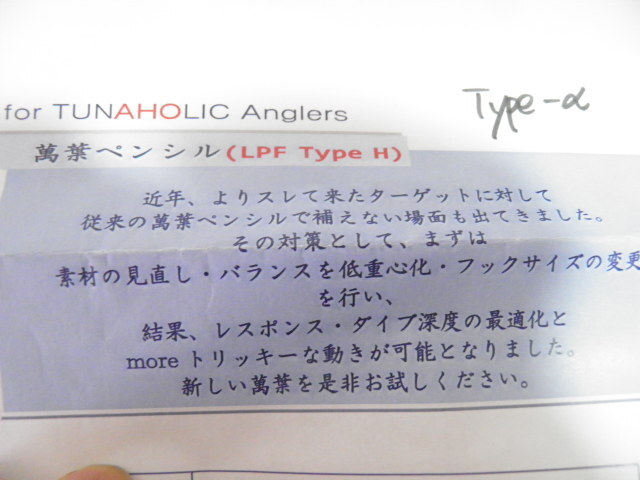 for TUNAHOLIC Anglers
Type-α
萬葉ペンシル(LPF Type H)
近年、よりスレて来たターゲットに対して
従来の萬葉ペンシルで補えない場面も出てきました。
その対策として、まずは
素材の見直し・バランスを低重心化・フックサイズの変更
を行い、
結果、レスポンス・ダイブ深度の最適化と
more トリッキーな動きが可能となりました。
新しい萬葉を是非お試しください。